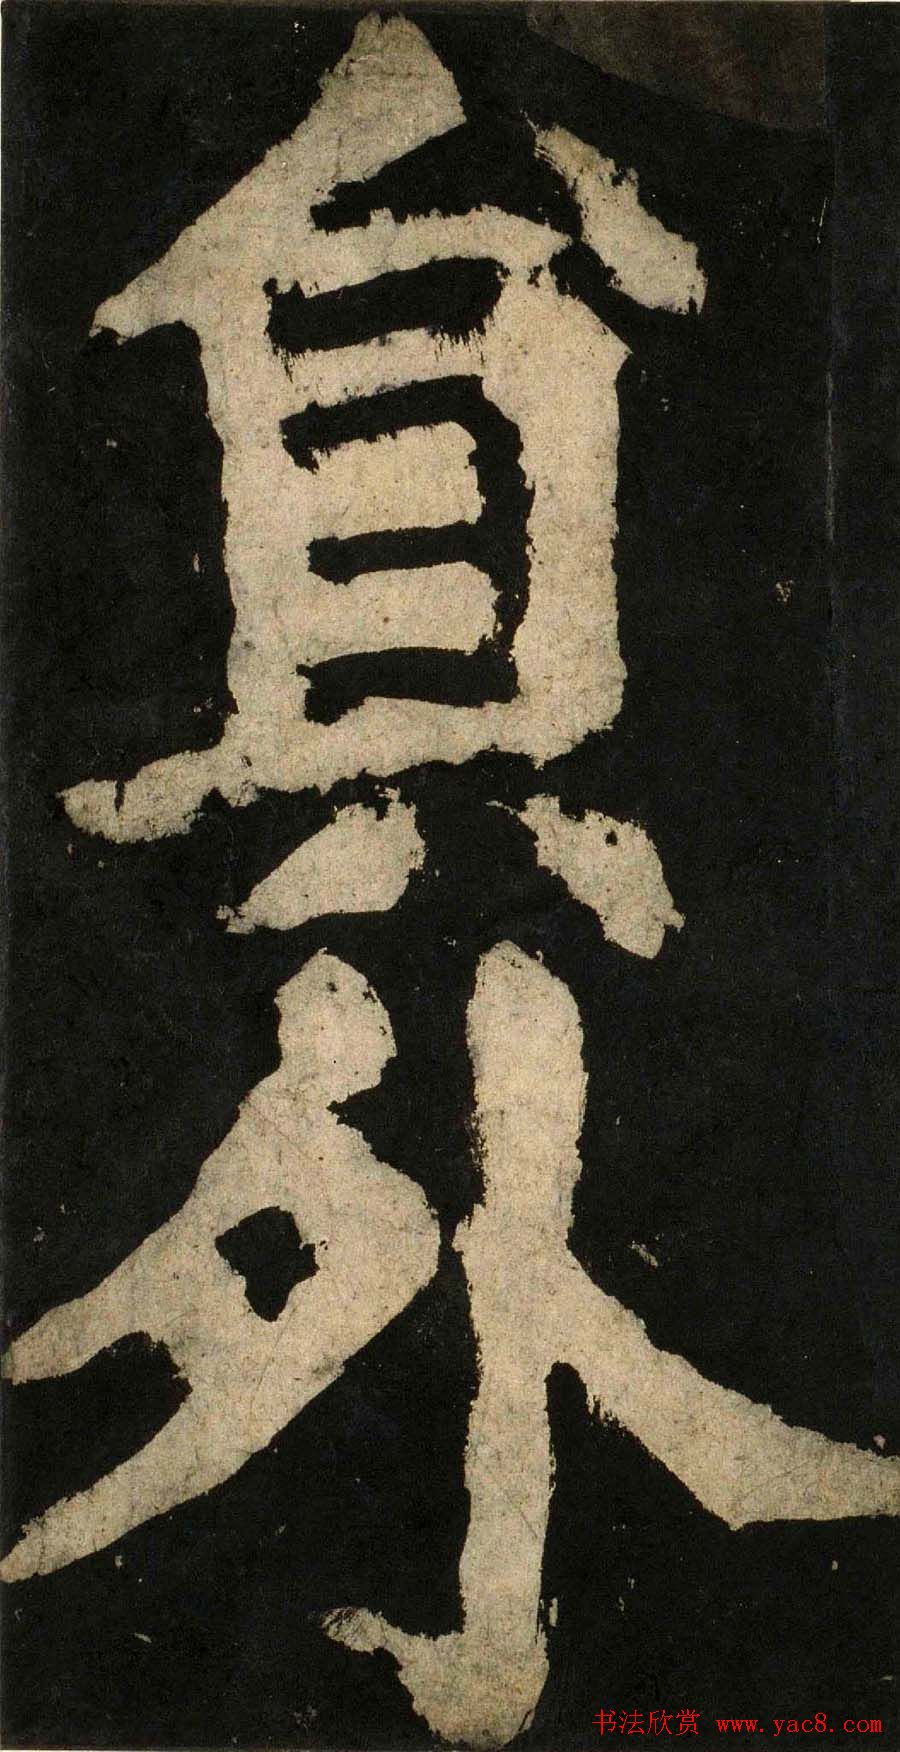 貟
外
书法欣赏 www.yac8.com